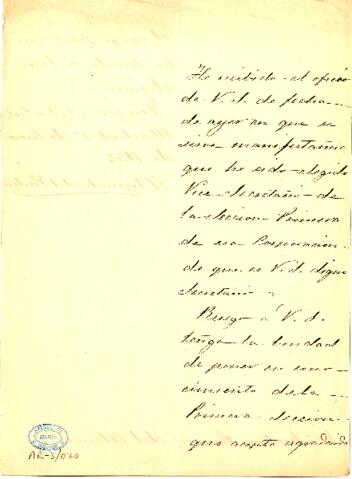 He recibido el oficio
de V. S. de fecha
de ayer en que se
sirve manifestarme
que he sido elegido
Vice-Secretario de
la seccion Primera
de esa Corporacion
de que es V. S. digno
Secretario.
Ruego á V. S.
tenga la bondad
de poner en cono-
cimiento de la
Primera Seccion
que acepto agradecido
AR-3/070